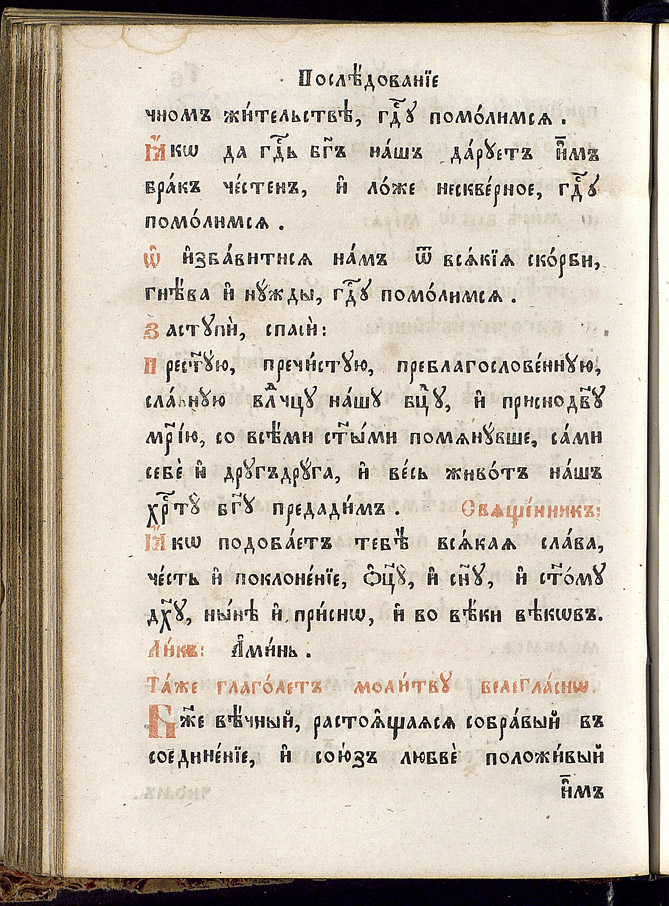 Послѣ́дованїе
чномъ жи́тельствѣ, гдⷭ҇ꙋ помо́лимсѧ .
Ꙗ҆́кѡ да гдⷭ҇ь бг҃ъ на́шъ да́рꙋетъ и҆̀мъ
бра́къ че́стенъ, и҆ ло́же нескве́рное, гдⷭ҇ꙋ
помо́лимсѧ .
Ѡ҆ и҆зба́витисѧ на́мъ ѿ всѧ́кїѧ ско́рби,
гнѣ́ва и҆ нꙋ́жды, гдⷭ҇ꙋ помо́лимсѧ .
Застꙋпѝ, спасѝ:
Прест҃ꙋю, пречⷭ҇тꙋю, преблагослове́ннꙋю,
сла́внꙋю влⷣчцꙋ на́шꙋ бцⷣꙋ, и҆ приснодв҃ꙋ
мр҃і́ю, со всѣ́ми ст҃ы́ми помѧнꙋ́вше, са́ми
себѐ и҆ дрꙋ́гъдрꙋга, и҆ ве́сь живо́тъ на́шъ
хрⷭ҇тꙋ̀ бг҃ꙋ предади́мъ . Свѧще́нникъ:
Ꙗ҆́кѡ подоба́етъ тебѣ̀ всѧ́каѧ сла́ва,
че́сть и҆ поклоне́нїе, ѻ҆ц҃ꙋ̀, и҆ сн҃ꙋ, и҆ ст҃о́мꙋ
дх҃ꙋ, ны́нѣ и҆ при́снѡ, и҆ во вѣ́ки вѣкѡ́въ.
Ли́къ: А҆ми́нь .
Та́же глаго́летъ моли́твꙋ велегла́снѡ.
Бж҃е вѣ́чный, растоѧ̑щаѧсѧ собра́вый въ
соедине́нїе, и҆ сою́зъ любвѐ положи́вый
и҆̀мъ